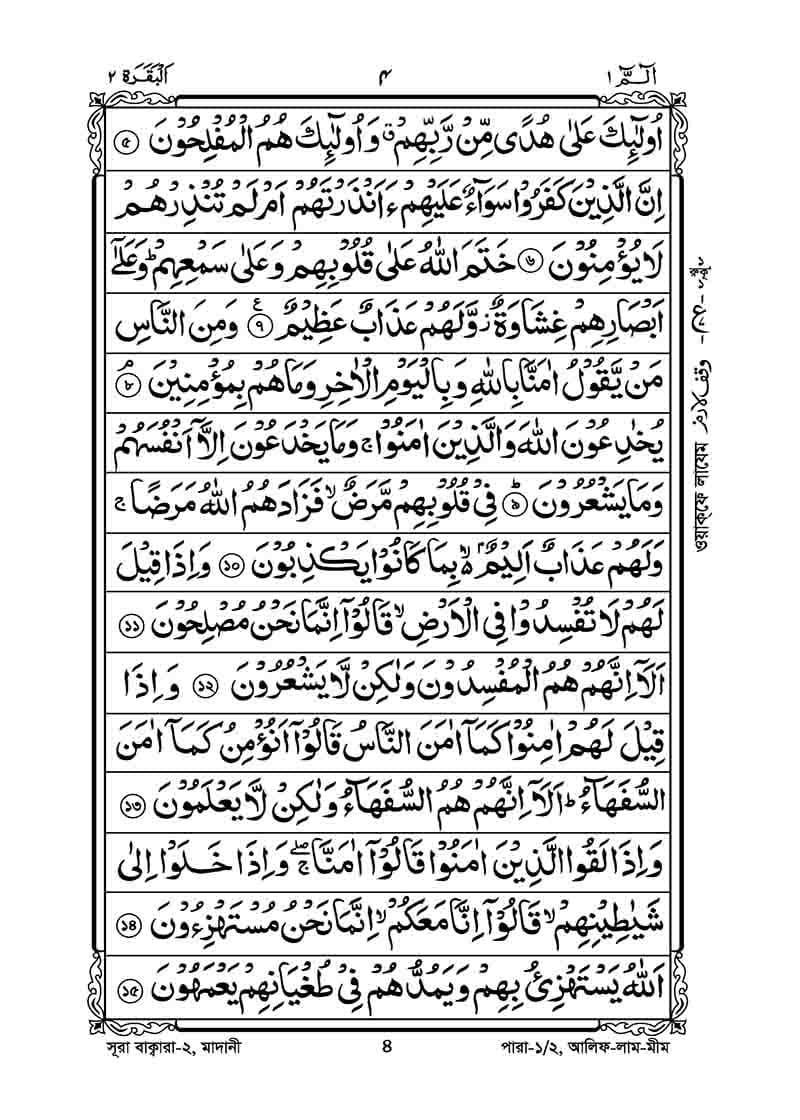 الٓـمّٓ ١ ۴ اَلْبَقَرَة ٢
اُولٰٓئِكَ عَلٰى هُدًى مِّنْ رَّبِّهِمْ ۗ وَاُولٰٓئِكَ هُمُ الْمُفْلِحُوْنَ ৫
اِنَّ الَّذِيْنَ كَفَرُوْا سَوَآءٌ عَلَيْهِمْ ءَاَنْذَرْتَهُمْ اَمْ لَمْ تُنْذِرْهُمْ
لَا يُؤْمِنُوْنَ ৬ خَتَمَ اللهُ عَلٰى قُلُوْبِهِمْ وَعَلٰى سَمْعِهِمْ ؕ وَعَلٰٓى
اَبْصَارِهِمْ غِشَاوَةٌ ز وَّلَهُمْ عَذَابٌ عَظِيْمٌ ৭ ع وَمِنَ النَّاسِ
مَنْ يَّقُوْلُ اٰمَنَّا بِاللهِ وَبِالْيَوْمِ الْاٰخِرِ وَمَا هُمْ بِمُؤْمِنِيْنَ ۘ ৮
يُخٰدِعُوْنَ اللهَ وَالَّذِيْنَ اٰمَنُوْا ۚ وَمَا يَخْدَعُوْنَ اِلَّآ اَنْفُسَهُمْ
وَمَا يَشْعُرُوْنَ ৯ فِيْ قُلُوْبِهِمْ مَّرَضٌ ۙ فَزَادَهُمُ اللهُ مَرَضًا ۚ
وَلَهُمْ عَذَابٌ اَلِيْمٌۢ ۙ۬ بِمَا كَانُوْا يَكْذِبُوْنَ ১০ وَاِذَا قِيْلَ
لَهُمْ لَا تُفْسِدُوْا فِى الْاَرْضِ ۙ قَالُوْٓا اِنَّمَا نَحْنُ مُصْلِحُوْنَ ১১
اَلَآ اِنَّهُمْ هُمُ الْمُفْسِدُوْنَ وَلٰكِنْ لَّا يَشْعُرُوْنَ ১২ وَاِذَا
قِيْلَ لَهُمْ اٰمِنُوْا كَمَآ اٰمَنَ النَّاسُ قَالُوْٓا اَنُؤْمِنُ كَمَآ اٰمَنَ
السُّفَهَآءُ ؕ اَلَآ اِنَّهُمْ هُمُ السُّفَهَآءُ وَلٰكِنْ لَّا يَعْلَمُوْنَ ১৩
وَاِذَا لَقُوا الَّذِيْنَ اٰمَنُوْا قَالُوْٓا اٰمَنَّا ۚۖ وَاِذَا خَلَوْا اِلٰى
شَيٰطِيْنِهِمْ ۙ قَالُوْٓا اِنَّا مَعَكُمْ ۙ اِنَّمَا نَحْنُ مُسْتَهْزِءُوْنَ ১৪
اَللهُ يَسْتَهْزِئُ بِهِمْ وَيَمُدُّهُمْ فِيْ طُغْيَانِهِمْ يَعْمَهُوْنَ ১৫
ওয়াক্ফে লাযেম وقف لازم
সূরা বাক্বারা-২, মাদানী ৪ পারা-১/২, আলিফ-লাম-মীম